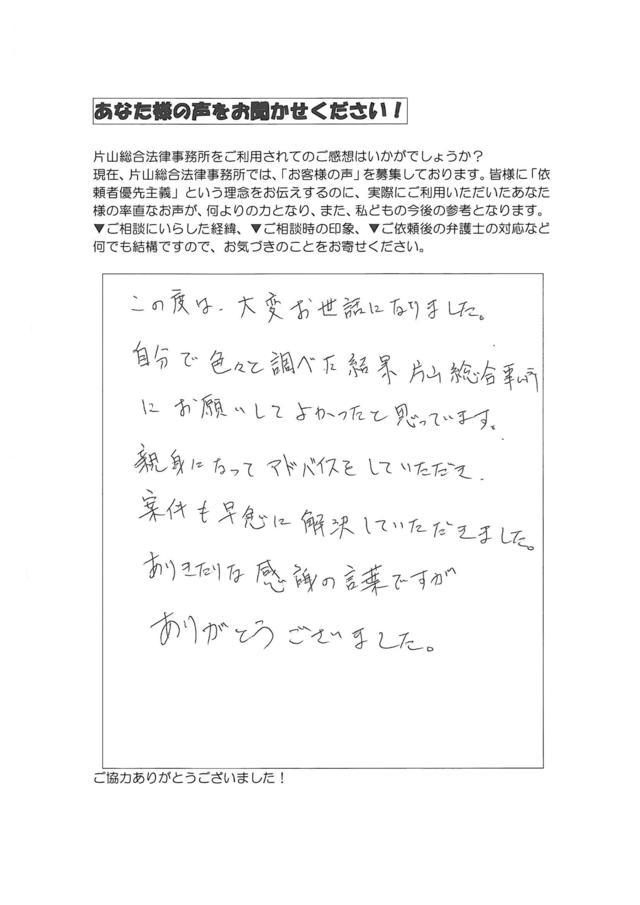 あなた様の声をお聞かせください！
片山総合法律事務所をご利用されてのご感想はいかがでしょうか？
現在、片山総合法律事務所では、「お客様の声」を募集しております。皆様に「依
頼者優先主義」という理念をお伝えするのに、実際にご利用いただいたあなた
様の率直なお声が、何よりの力となり、また、私どもの今後の参考となります。
▼ご相談にいらした経緯、▼ご相談時の印象、▼ご依頼後の弁護士の対応など
何でも結構ですので、お気づきのことをお寄せください。
この度は、大変お世話になりました。
自分で色々と調べた結果 片山総合事ム所
にお願いしてよかったと思っています。
親身になってアドバイスをしていただき、
案件も早急に解決していただきました。
ありきたりな感謝の言葉ですが
ありがとうございました。
ご協力ありがとうございました！